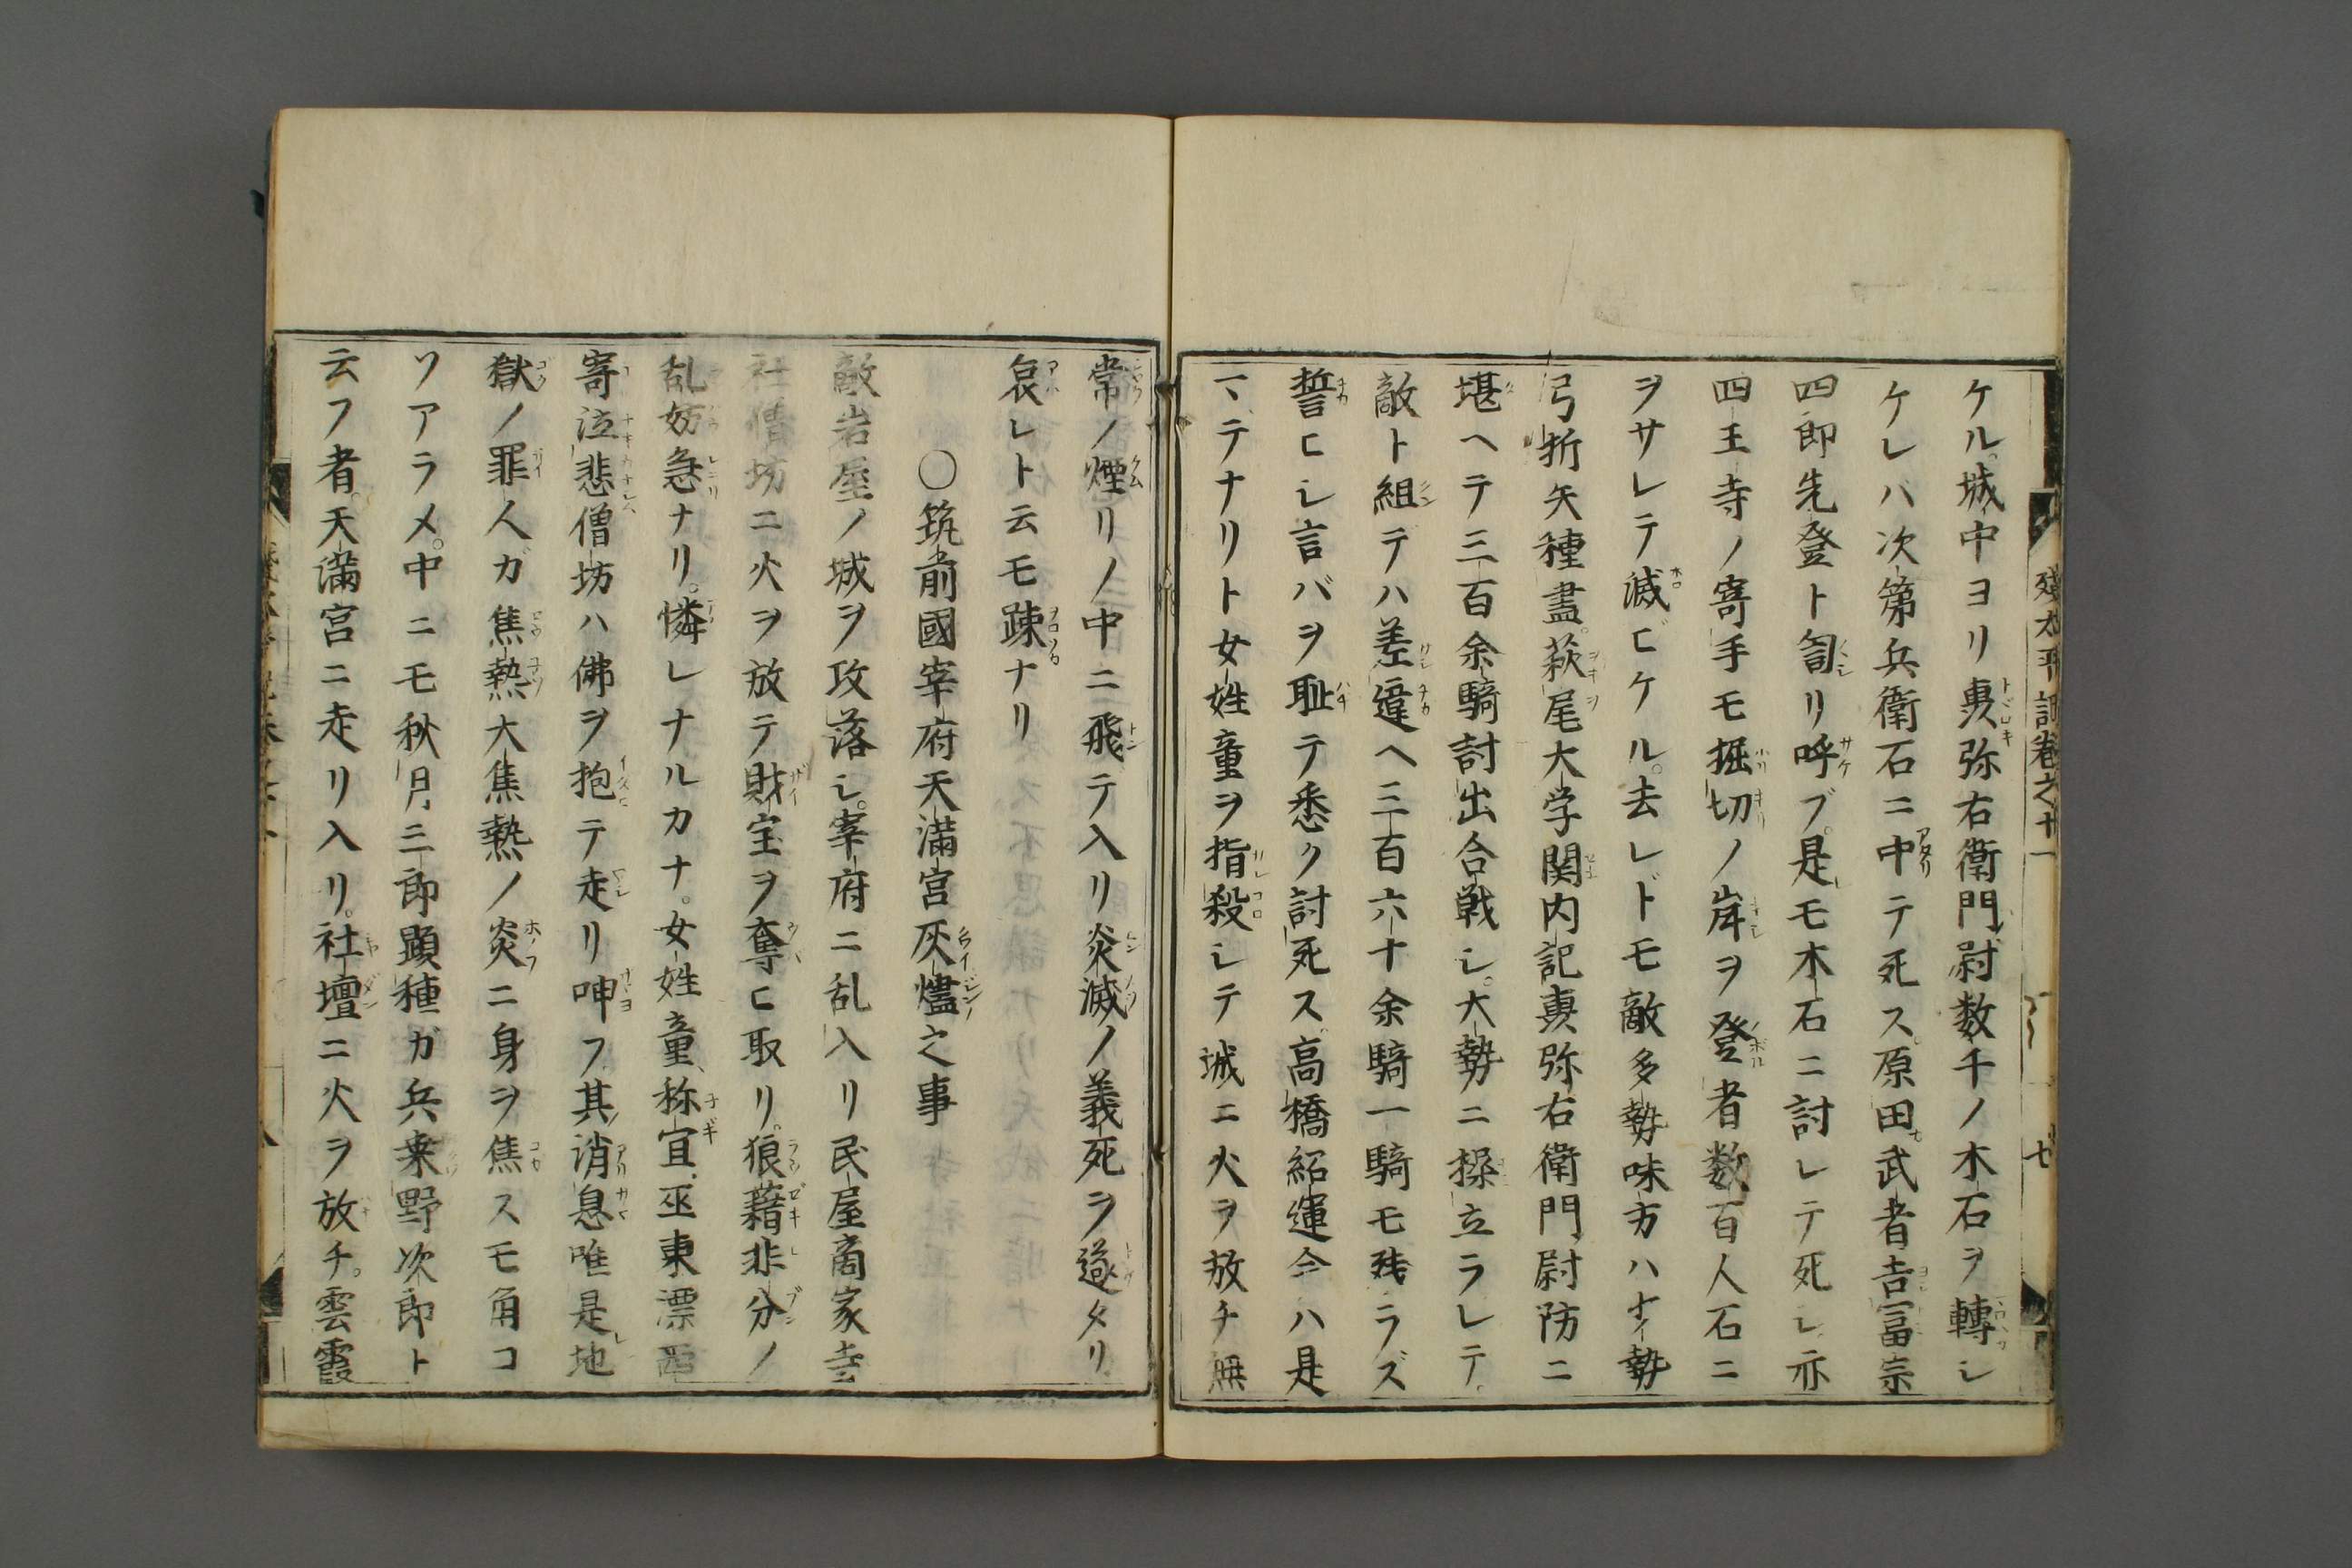 残太平記巻之十一 七
ケル。城中ヨリ轟弥右衛門尉数千ノ木石ヲ轉シ
ケレバ次第兵衛石ニ中テ死ス。原田武者吉冨宗
四郎先登ト訇リ呼ブ。是モ木石ニ討レテ死シ亦
四王寺ノ寄手モ掘切ノ岸ヲ登者数百人石ニ
ヲサレテ滅ビケル。去レドモ敵多勢味方ハ勢
弓折矢種盡。萩尾大学関内記轟弥右衛門尉防ニ
堪ヘテ三百余騎討出合戦シ。大勢ニ操立ラレテ
敵ト組デハ差違ヘ三百六十余騎一騎モ残ラズ
誓ヒシ言バヲ耻テ悉ク討死ス。高橋紹運今ハ是
マデナリト女姓童ヲ指殺シテ城ニ火ヲ放チ無
常ノ煙リノ中ニ飛テ入リ炎滅ノ義死ヲ遂タリ
哀レト云モ踈ナリ
〇筑前國宰府天満宮灰燼之事
敵岩屋ノ城ヲ攻落シ。宰府ニ乱入リ民屋商家寺
社僧坊ニ火ヲ放テ財宝ヲ奪ヒ取リ。狼藉非分ノ
乱妨急ナリ。憐レナルカナ。女姓童称宜巫東漂西
寄泣悲僧坊ハ佛ヲ抱テ走リ呻フ其消息唯是地
獄ノ罪人ガ焦熱大焦熱ノ炎ニ身ヲ焦スモ角コ
ソアラメ。中ニモ秋月三郎顕種ガ兵来野次郎ト
云フ者。天満宮ニ走リ入リ。社壇ニ火ヲ放チ。雲霞